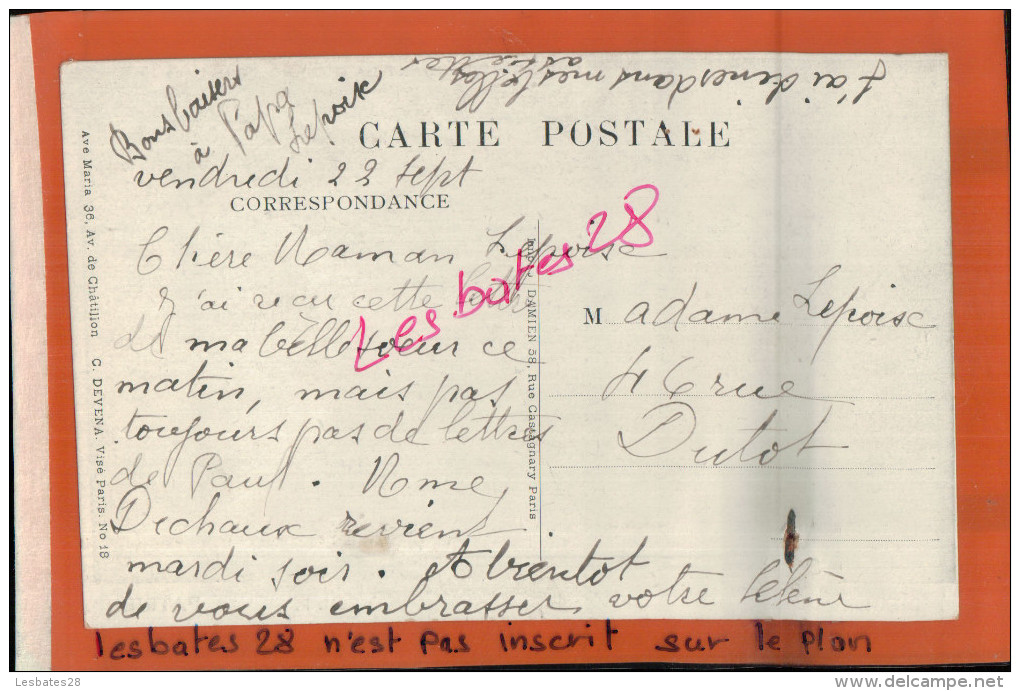 J'ai dînes dans mes belles
assiettes
Bons baisers
à Papa
Lepoix
CARTE POSTALE
vendredi 22 Sept
CORRESPONDANCE
Chère Maman Lepoix
j'ai reçu cette lettre
de ma belle soeur ce
matin, mais pas
toujours pas de lettres
de Paul. Mme
Dechaux revient
mardi soir. A bientot
de vous embrasser votre Hélène
Madame Lepoix
46 rue
Dutot
Ave Maria 36, Av. de Châtillon C. DEVENA. Visé Paris. No 18
DAMIEN 38, Rue Castagnary Paris
Les bates 28
lesbates 28 n'est pas inscrit sur le plan
Lesbates28
www.delcampe.net